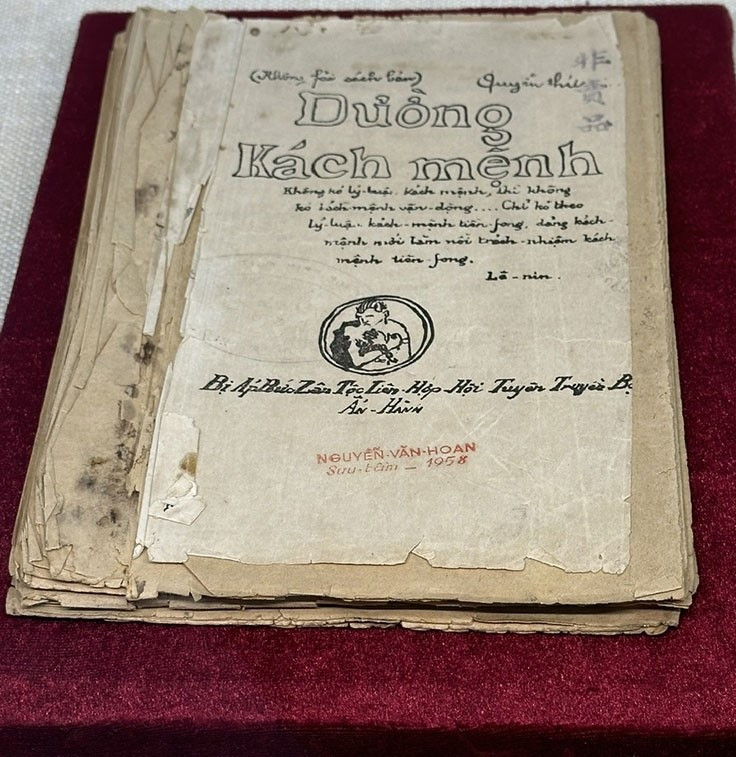 (Không fải sách bán) Quyển thứ
非賣品
Dường
Kách mệnh
Không kó lý-luận kách mệnh, thì không
kó kách mệnh vận-động.... Chỉ kó theo
lý-luận kách-mệnh tiền fong, đảng kách-
mệnh mới làm nổi trách-nhiệm kách
mệnh tiền-fong.
Lê-nin.
Bị Áp Bức Zân Tộc Liên-Hợp Hội Tuyên Truyền
Ấn-Hành
NGUYỄN-VĂN-HOAN
Sưu-tầm – 1958